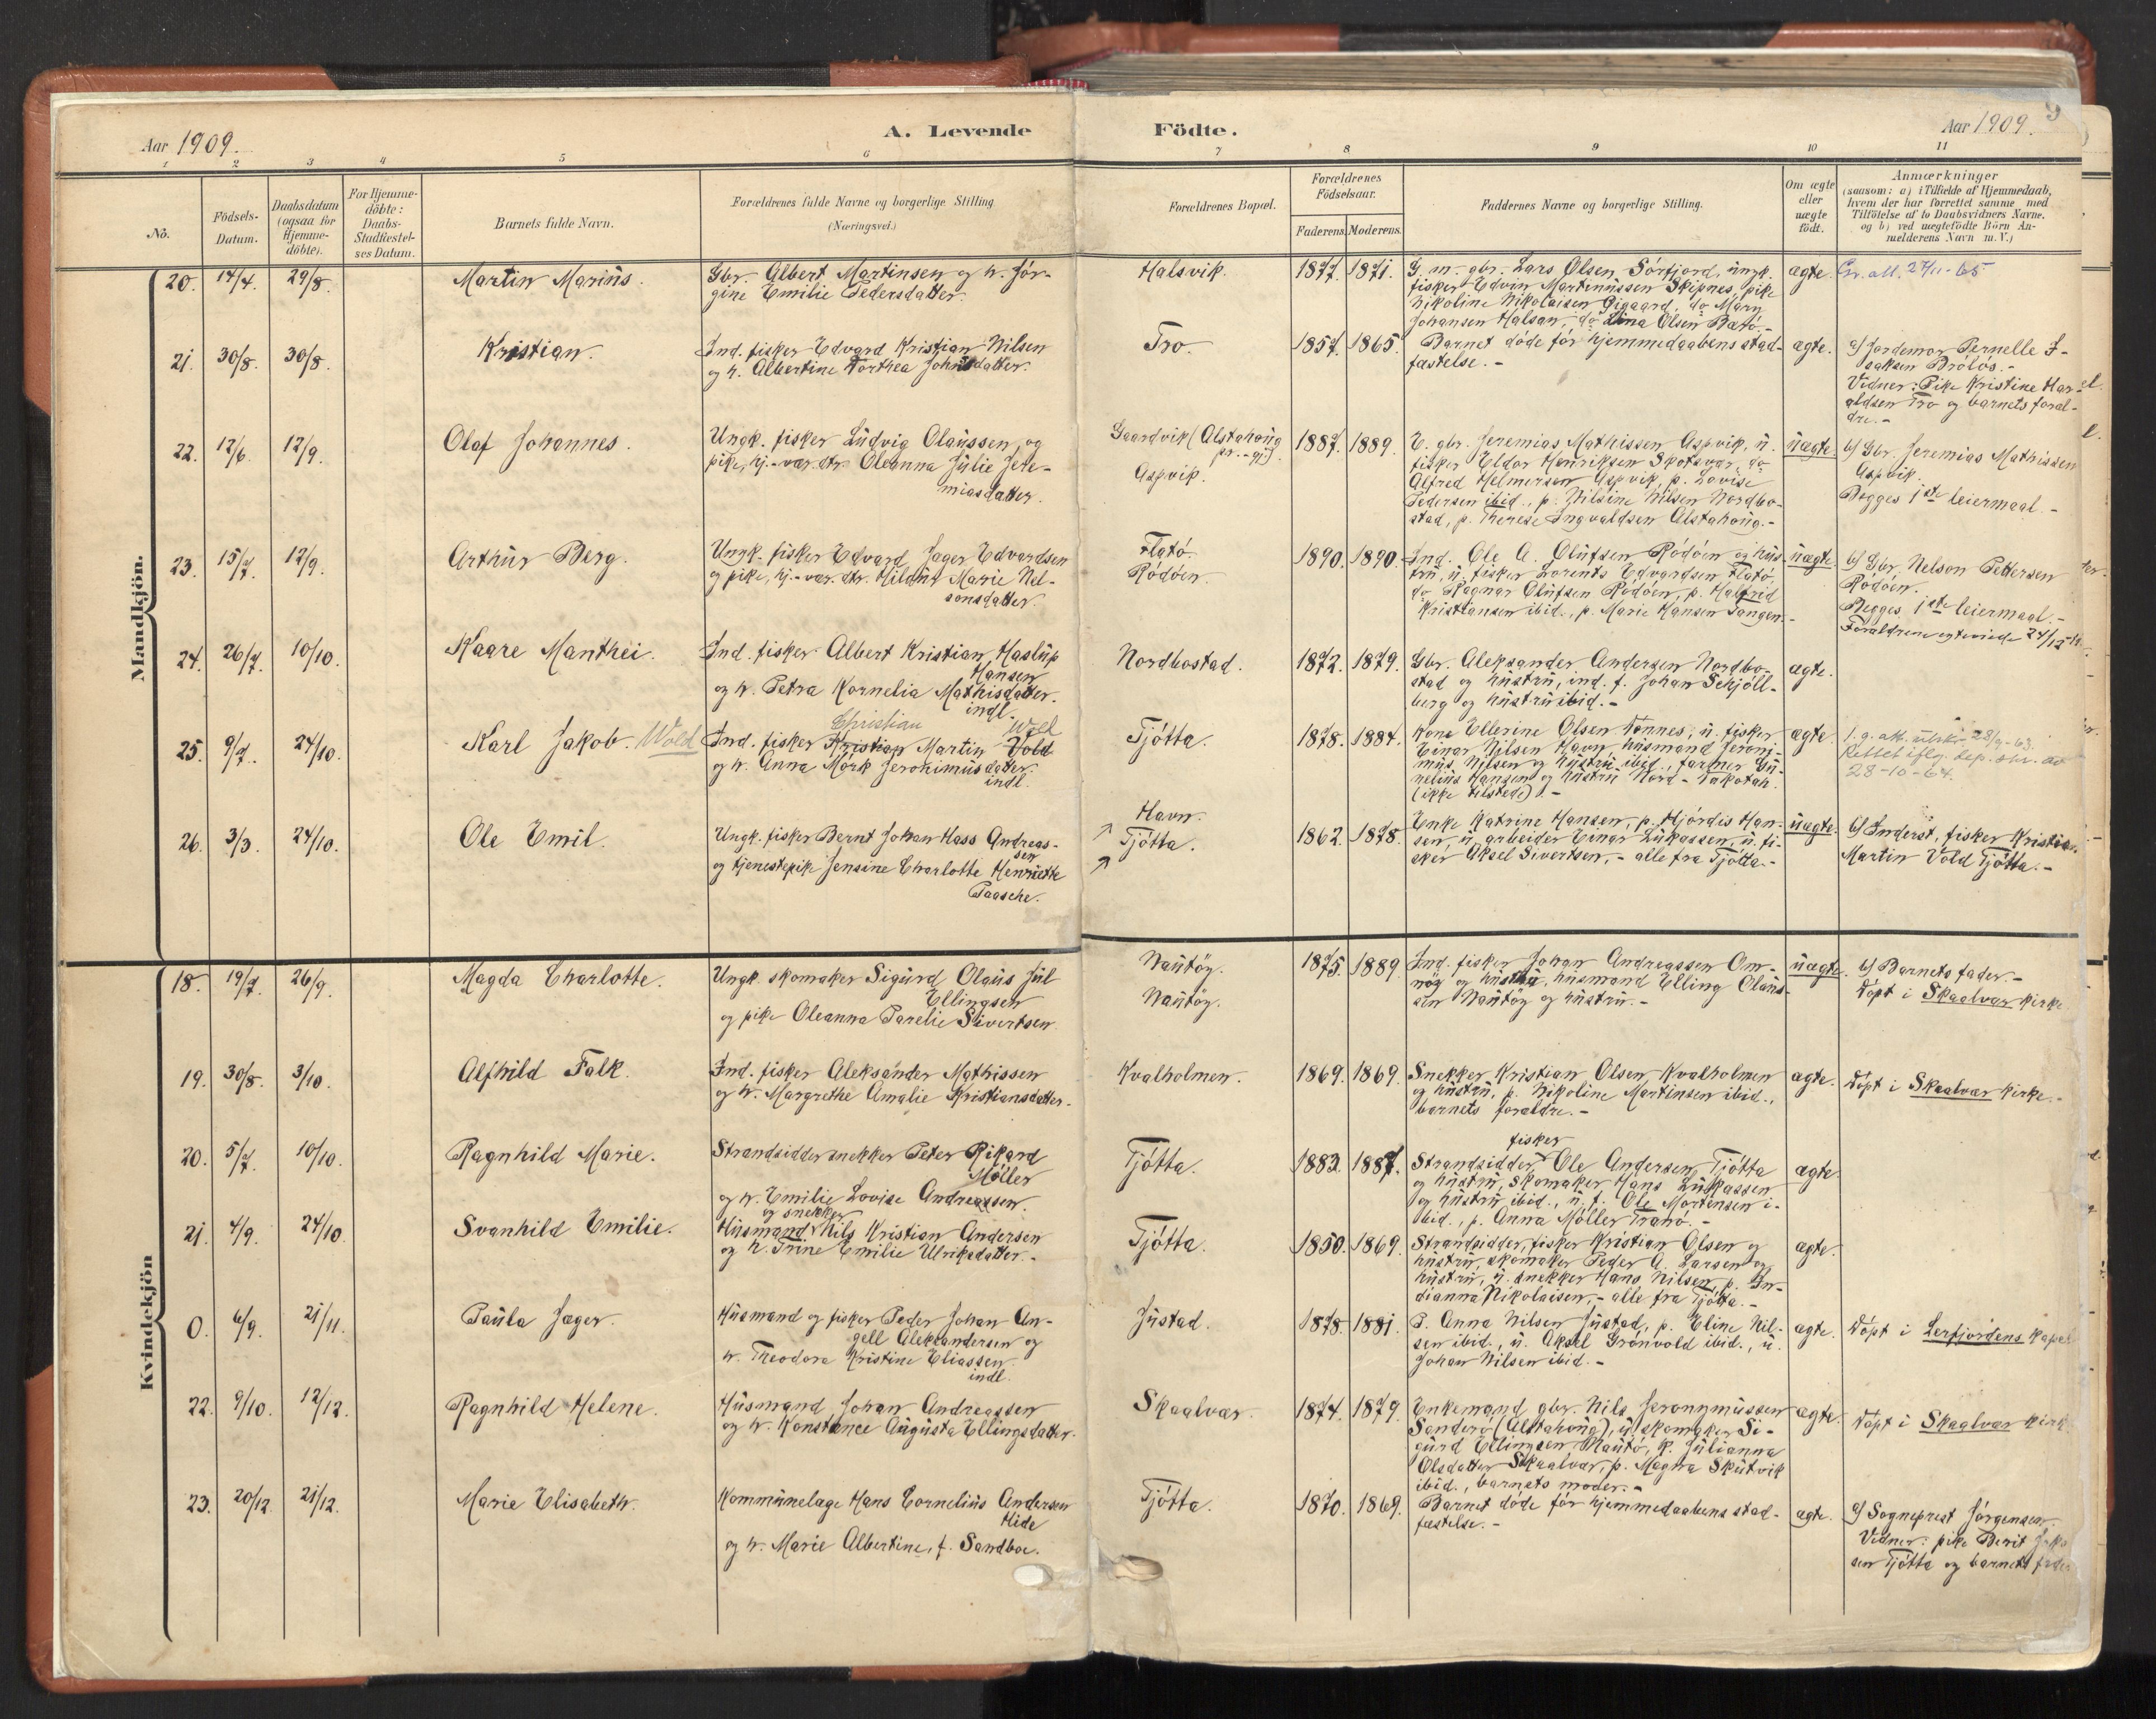 Aar 1909.
A. Levende
Födte.
Aar 1909.
1 2 3 4 5 6 7 8 9 10 11
No.
Födsels-
Datum.
Daabsdatum
(ogsaa for
Hjemme-
döbte).
For Hjemme-
döbte:
Daabs-
Stadfæstel-
ses Datum.
Barnets fulde Navn.
Forældrenes fulde Navne og borgerlige Stilling
(Næringsvei.)
Forældrenes Bopæl.
Forældrenes
Födselsaar.
Faderens. Moderens.
Faddernes Navne og borgerlige Stilling.
Om ægte
eller
uægte
födt.
Anmærkninger
(saasom: a) i Tilfælde af Hjemmedaab,
hvem der har forrettet samme med
Tilföielse af to Daabsvidners Navne.
og b) ved uægtefödte Börn An-
melderens Navn m. V.)
Mandkjön.
20. 14/4. 29/8. Martin Marius.
Gbr. Albert Martinsen og h. Jör-
gine Emilie Pedersdatter.
Halsvik. 1877. 1871.
G. m. gbr. Lars Olsen Sörfjord, ungk.
fisker Edvin Martinussen Skipnes, pike
Nikoline Nikolaisen Gigaard, do Mary
Johansen Halsan, do Lina Olsen Barö.-
ægte. 27/11-65
21. 30/8. 30/8. Kristian.
Ind. fisker Edvard Kristian Nilsen
og h. Albertine Torthea Johnsdatter.
Tro. 1857. 1865.
Barnet döde för hjemmedaabens stad-
fæstelse.-
ægte. a) Jordemor Pernelle I-
saksen Brölös.-
Vidner: Pike Kristine Har-
aldsen Tro og barnets foræl-
dre.-
22. 12/6. 12/9. Olaf Johannes.
Ungk. fisker Ludvig Olaussen, og
pike, hj.-vær. dtr. Oleanna Julie Jere-
miasdatter.
Gaardvik (Alstahoug
pr.-gj.)
Aspvik.
1887. 1889.
E. gbr. Jeremias Mathissen Aspvik, u.
fisker Eldor Henriksen Skotsvær, do
Alfred Helmersen Aspvik, p. Lovise
Pedersen ibid., p. Nilsine Nilsen Nordbo-
stad, p. Therese Ingvaldsen Alstahoug.-
uægte. b) Gbr. Jeremias Mathissen
Aspvik.
Begges 1ste leiermaal.-
23. 15/7. 12/9. Arthur Berg.
Ungk. fisker Edvard Jæger Edvardsen
og pike, hj.-vær. dtr. Hildur Marie Nel-
sonsdatter.
Flatö.
Rödöen.
1890. 1890.
Ind. Ole A. Olufsen Rödöen og hus-
tru, u. fisker Lorents Edvardsen Flatö,
do Ragnar Olufsen Rödöen, p. Halfrid
Kristiansen ibid., p. Marie Hansen Tangen.-
uægte. b) Gbr. Nelson Pettersen
Rödöen.
Begges 1ste leiermaal.-
Forældrene egteviede 24/12-11.
24. 26/7. 10/10. Kaare Manthei.
Ind. fisker Albert Kristian Haslup
Hansen
og h. Petra Kornelia Mathisdatter.
indl.
Nordbostad. 1872. 1879.
Gbr. Aleksander Andersen Nordbo-
stad og hustru, ind. f. Johan Schjöll-
berg og hustru ibid.-
ægte.
25. 9/7. 24/10. Karl Jakob. Wold
Christian Wold
Ind. fisker Kristian Martin Vold
og h. Anna Mörk Jeronimusdatter.
indl.
Tjötta. 1878. 1884.
Kone Ellerine Olsen Tönnes, u. fisker
Einar Nilsen Havn, husmand Jeroni-
mus Nilsen og hustru ibid., farmer Cu-
nelius Hansen og hustru Nord-Dakotah
(ikke tilstede).-
ægte. 1. g. att. utskr. 28/9-63.
Rettet iflg. dep. skr. av
28-10-64.
26. 3/3. 24/10. Ole Emil.
Ungk. fisker Bernt Johan Hass Andreas-
sen
og tjenestepike Jensine Charlotte Henriette
Paasche.
Havn.
Tjötta.
1862. 1878.
Enke Katrine Hansen, p. Hjördis Han-
sen, u. arbeider Einar Lukassen, u. fi-
sker Aksel Sivertsen,- alle fra Tjötta.-
uægte. b) Inderst, fisker Kristian
Martin Vold Tjötta.-
Kvindekjön
18. 19/7. 26/9. Magda Charlotte.
Ungk. skomaker Sigurd Olaus Jul
Ellingsen
og pike Oleanna Parelie Sivertsen
Nautöy.
Nautöy.
1875. 1889.
Ind. fisker Johan Andreassen Om-
nöy og hustru, husmand Elling Olaus-
sen Nautöy og hustru.-
uægte. b) Barnets fader.-
Döpt i Skaalvær kirke
19. 30/8. 3/10. Alfhild Falk.
Ind. fisker Aleksander Mathissen
og h. Margrethe Amalie Kristiansdatter.
Kvalholmen. 1869. 1869.
Snekker Kristian Olsen Kvalholmen
og hustru, p. Nikoline Martinsen ibid.,
barnets forældre.-
ægte. Döpt i Skaalvær kirke.-
20. 5/7. 10/10. Ragnhild Marie.
Strandsidder snekker Peter Rikard
Möller
og h. Emilie Lovise Andreassen.
Tjötta. 1883. 1887.
fisker
Strandsidder Ole Andersen Tjötta
og hustru, skomaker Hans Lukassen
og hustru ibid., u. f. Ole Mortensen i-
bid., p. Anna Möller Tranö.-
ægte.
21. 4/9. 24/10. Svanhild Emilie.
og snekker
Husmand Nils Kristian Andersen
og h. Trine Emilie Ulriksdatter.-
Tjötta. 1850. 1869.
Strandsidder, fisker Kristian Olsen og
hustru, skomaker Peder A. Larsen og
hustru, u. snekker Hans Nilsen, p. In-
dianna Nikolaisen,- alle fra Tjötta.-
ægte.
0. 6/9. 21/11. Paula Jæger.
Husmand og fisker Peder Johan An-
gell Aleksandersen og
h. Theodora Kristine Eliassen.
indl.
Justad. 1878. 1881.
P. Anna Nilsen Justad, p. Eline Nil-
sen ibid., u. Aksel Grönvold ibid., u.
Johan Nilsen ibid.-
ægte. Döpt i Lerfjordens kapel
22. 9/10. 12/12. Ragnhild Helene.
Husmand Johan Andreassen
og h. Konstance Augusta Ellingsdatter.
Skaalvær. 1874. 1879.
Enkemand gbr. Nils Jeronymussen
Sanderö (Alstahoug), u. skomaker Si-
gurd Ellingsen Nautö, k. Julianna
Olsdatter Skaalvær, p. Magna Skutvik
ibid., barnets moder.-
ægte. Döpt i Skaalvær kirk
23. 20/12. 21/12. Marie Elisabeth.
Kommunelæge Hans Cornelius Andersen
Hide
og h. Marie Albertine, f. Sandboe.
Tjötta. 1870. 1869.
Barnet döde för hjemmedaabens stad-
fæstelse.-
ægte. a) Sogneprest Jörgensen.
Vidner: pike Berit
sen Tjötta og barnets fader